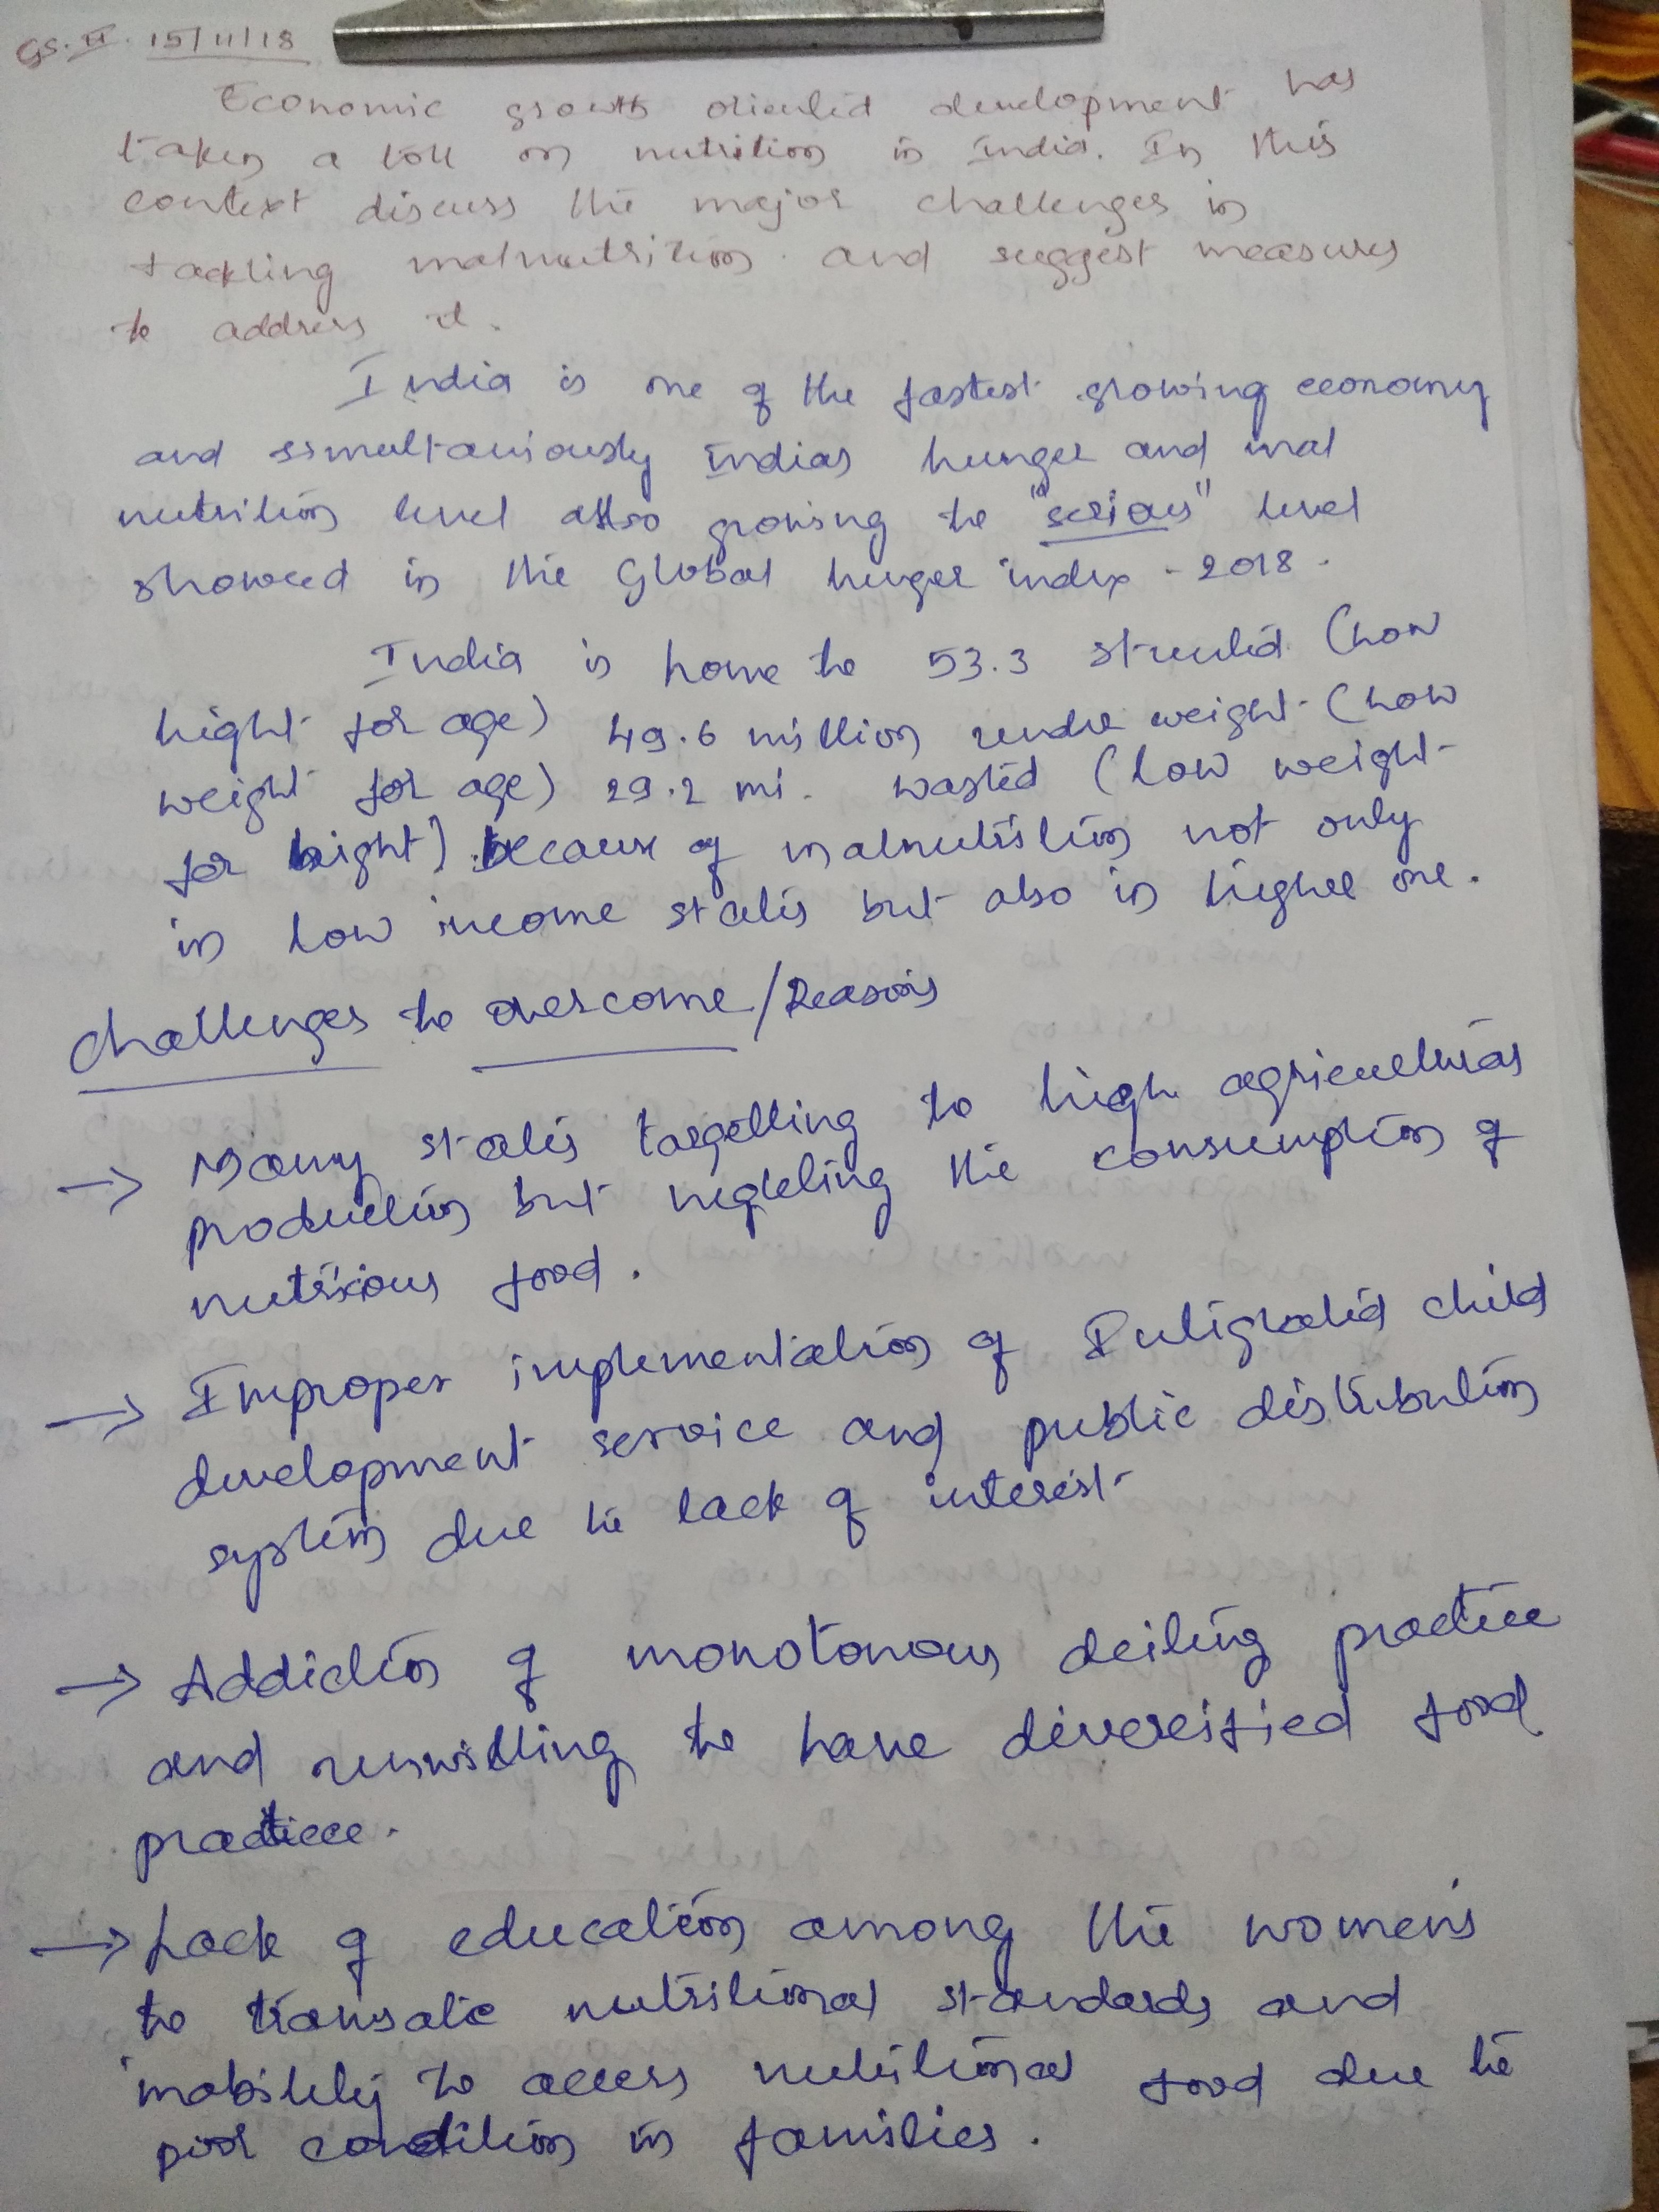 GS. II. 15/11/18
Economic growth oriented development has
taken a toll on nutrition in India. In this
context discuss the major challenges in
tackling malnutrition and suggest measures
to address it.
India is one of the fastest growing economy
and simultaniously Indias hunger and mal
nutrition level also growing to "serious" level
showed in the Global hunger index - 2018.
India is home to 53.3 stunted (low
hight for age) 49.6 million under weight (low
weight for age) 29.2 mi. wasted (low weight
for hight) because of malnutrition not only
in low income states but also in higher one.
Challenges to overcome/Reasons
→ Many states targetting to high agricultural
production but negleting the consumption of
nutricious food.
→ Improper implementation of Integrated child
development service and public distribution
system due to lack of interest
→ Addiction of monotonous deiting practice
and unwilling to have diversified food
practice.
→ Lack of education among the womens
to transate nutritional standards and
mobility to access nutritional food due to
poor condition in families.